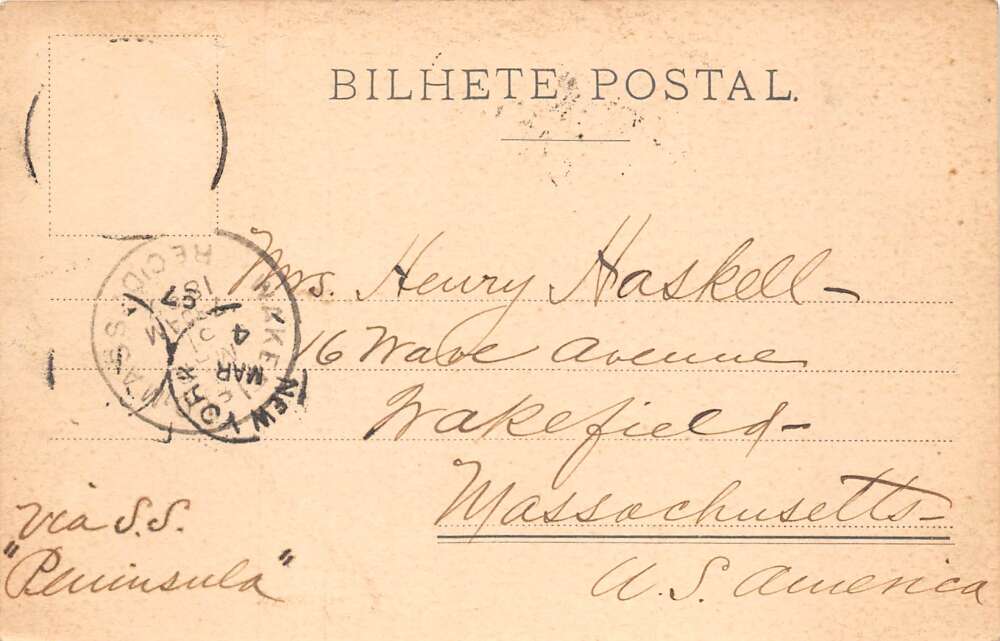 BILHETE POSTAL.
Mrs. Henry Haskell-
16 Wave Avenue
Wakefield-
Massachusetts-
U.S. America
via S.S.
"Peninsula"
NEW YORK
MAR
4
97
MASS.
REC'D.
18
AM